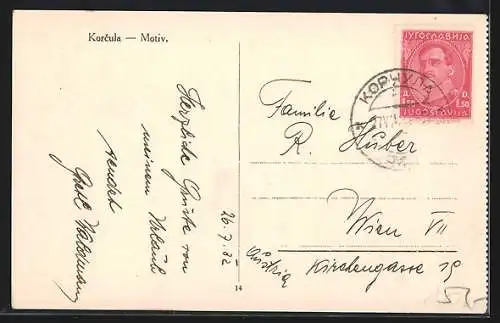 Korčula — Motiv.
Herzliche Grüße von
meinem Urlaub
sendet
Gretl
26.7.32
14
ЈУГОСЛАВИЈА
Д. D.
1.50
JUGOSLAVIJA
Familie
R. Huber
Wien VII
Kirchengasse 19
Austria